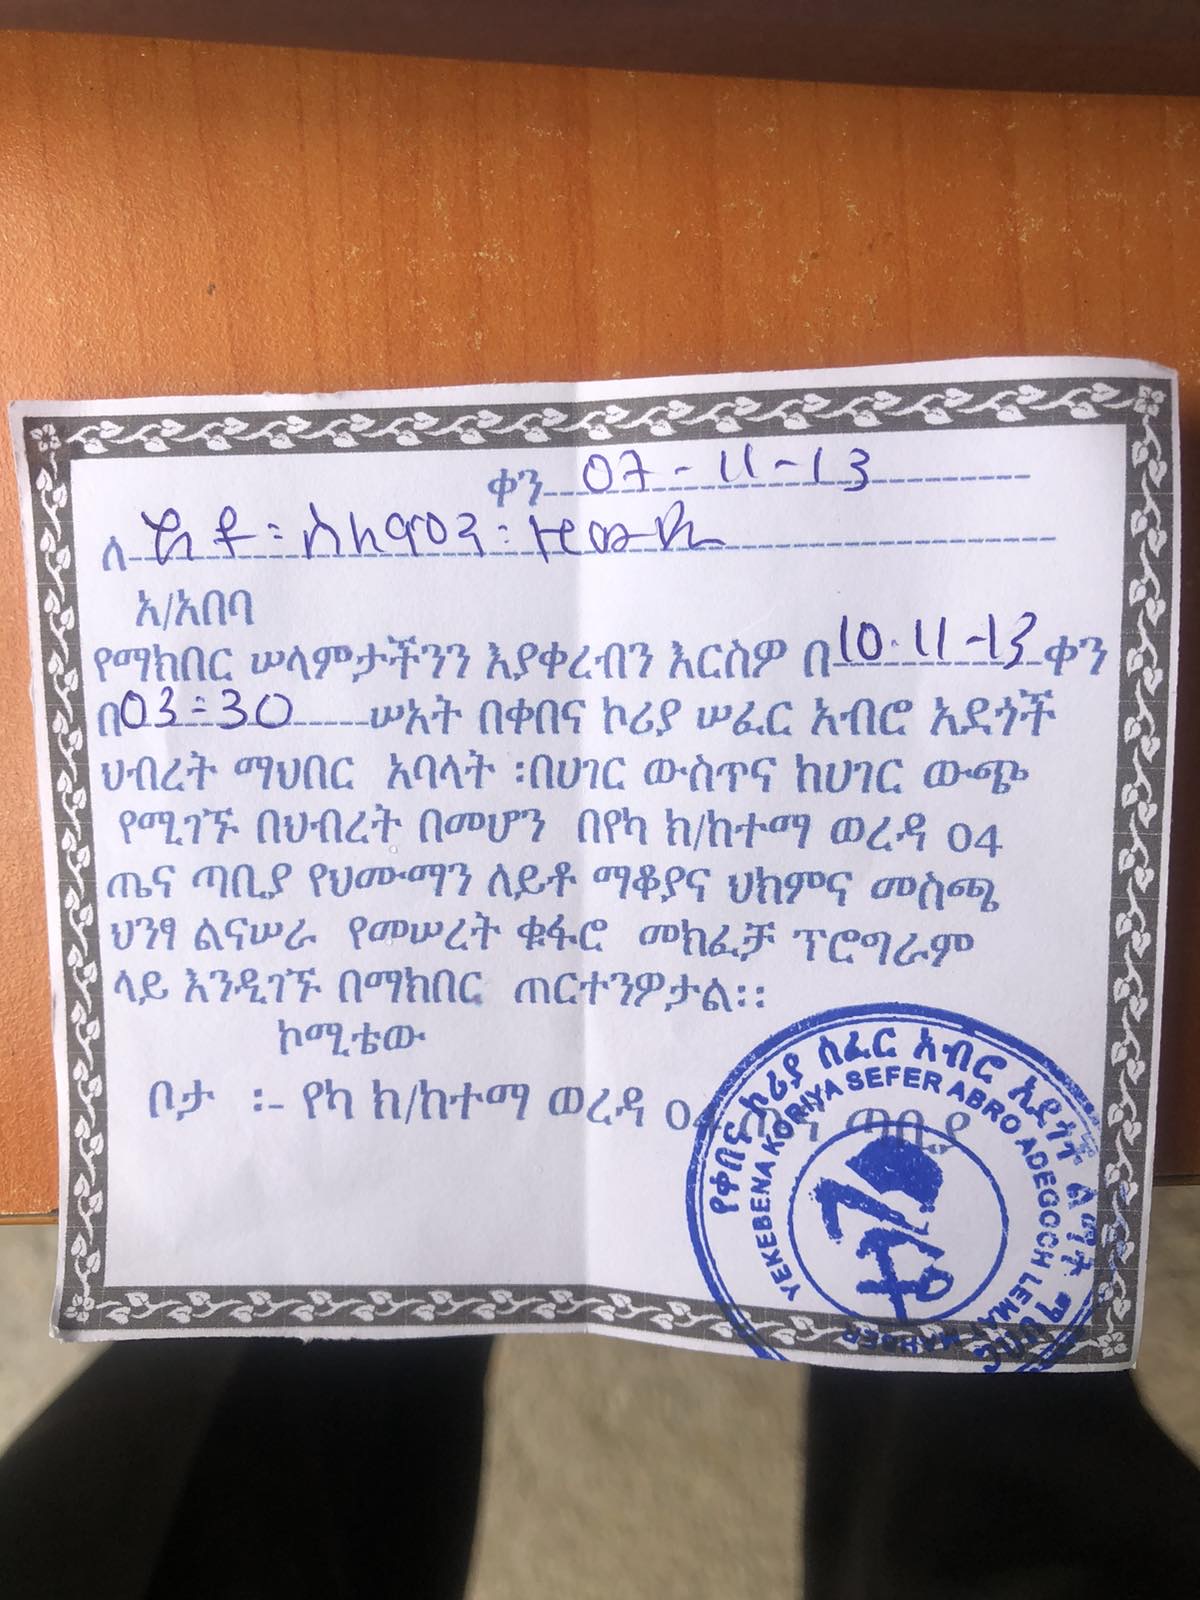 ቀን 07-11-13
ለ አቶ፡ ስለሞን፡ ዘውዴ
አ/አበባ
የማክበር ሠላምታችንን እያቀረብን እርስዎ በ 10-11-13 ቀን
በ 03:30 ሠአት በቀበና ኮሪያ ሠፈር አብሮ አደጎች
ህብረት ማህበር አባላት ፡በሀገር ውስጥና ከሀገር ውጭ
የሚገኙ በህብረት በመሆን በየካ ክ/ከተማ ወረዳ 04
ጤና ጣቢያ የህሙማን ለይቶ ማቆያና ህክምና መስጫ
ህንፃ ልናሠራ የመሠረት ቁፋሮ መክፈቻ ፕሮግራም
ላይ እንዲገኙ በማክበር ጠርተንዎታል፡፡
ኮሚቴው
ቦታ ፡- የካ ክ/ከተማ ወረዳ 04 ጤና ጣቢያ
የቀበና ኮሪያ ሰፈር አብሮ አደጎች ልማት ማህበር
YEKEBENA KORIYA SEFER ABRO ADEGOCH LEMAT MAHBER